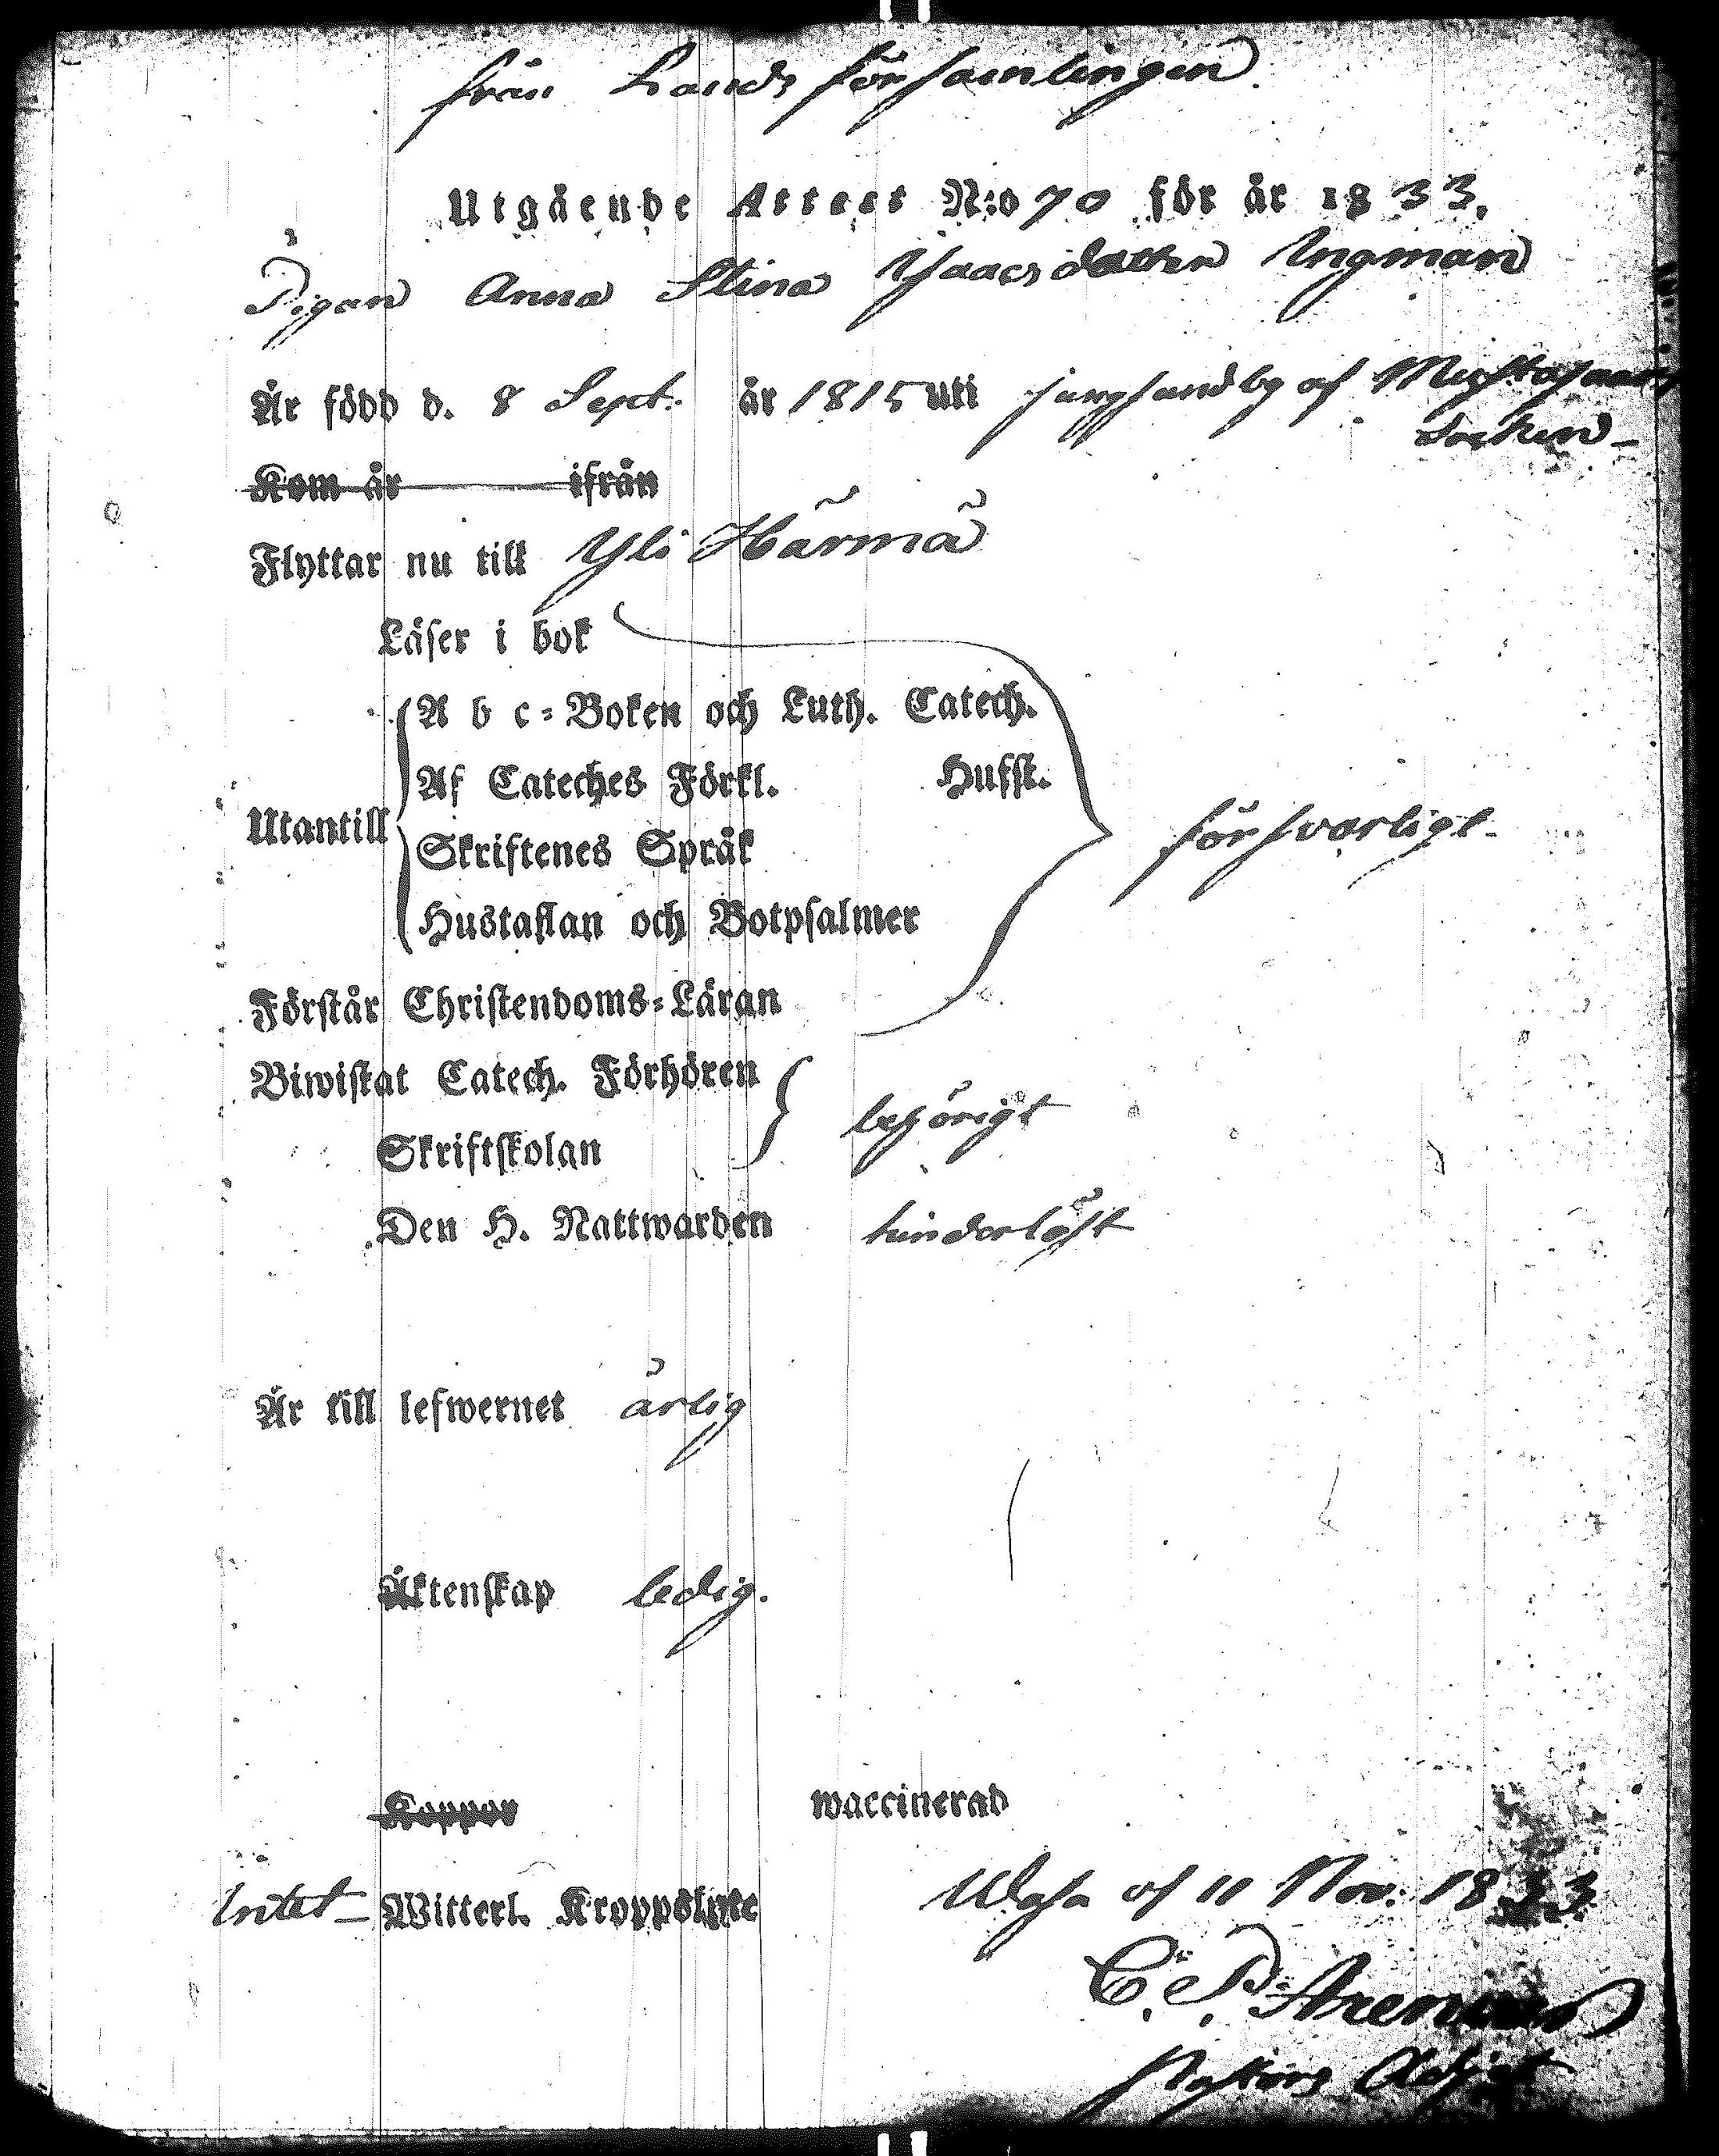 från Lands församlingen
Utgående Attest N:o 70 för år 1833.
Pigan Anna Stina Ysaacsdotter Ingman
Är född d. 8 Sept. år 1815 uti jungsundby af
Socken
Kom år ifrån
Flyttar nu till Yli Härmä
Läser i bok
A b c-Boken och Luth. Catech.
Af Cateches Förkl. Husst.
Utantill
försvarligt
Skriftenes Språk
Hustaflan och Botpsalmer
Förstår Christendoms-Läran
Biwistat Catech. Förhören
behörigt
Skriftskolan
Den H. Nattwarden hinderlöst
Är till lefwernet ärlig
Äktenskap ledig.
Koppor waccinerad
Intet Witterl. Kroppslyte
Wasa af 11 Nov. 1833
C. P.
Adjct